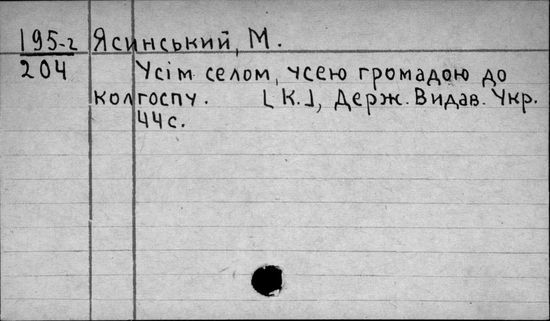 195-г Ясинський, М.
204 Усім селом, усею громадою до
колгоспу. [К.], Держ. Видав. Укр.
44с.